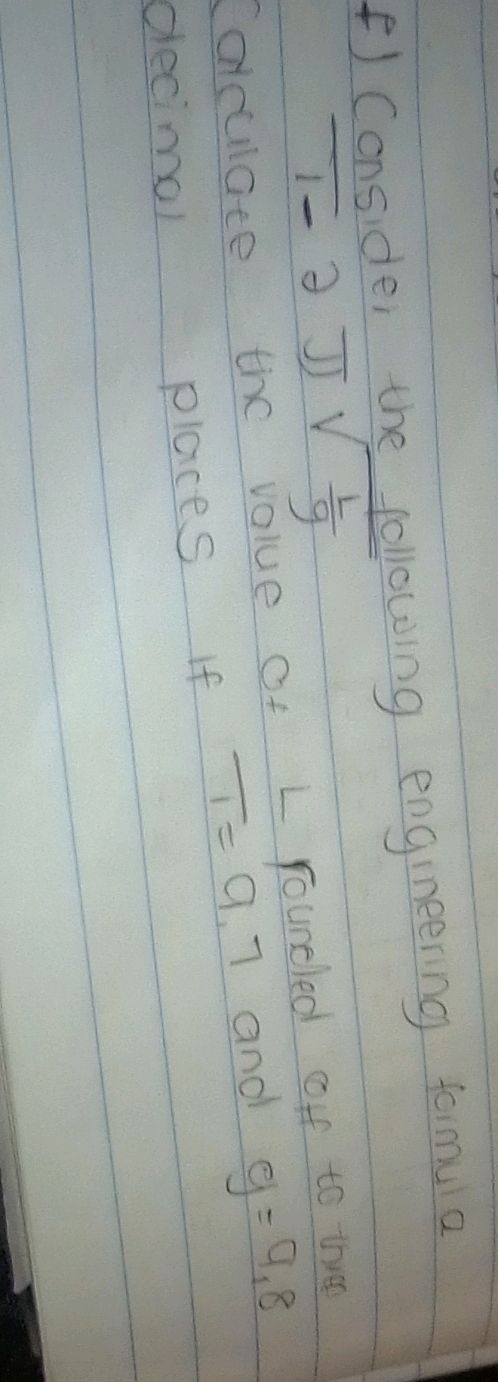 f) Consider the following engineering formula
T = 2 π √ L/g
Calculate the value of L rounded off to three
decimal places if T = 9,7 and g = 9,8